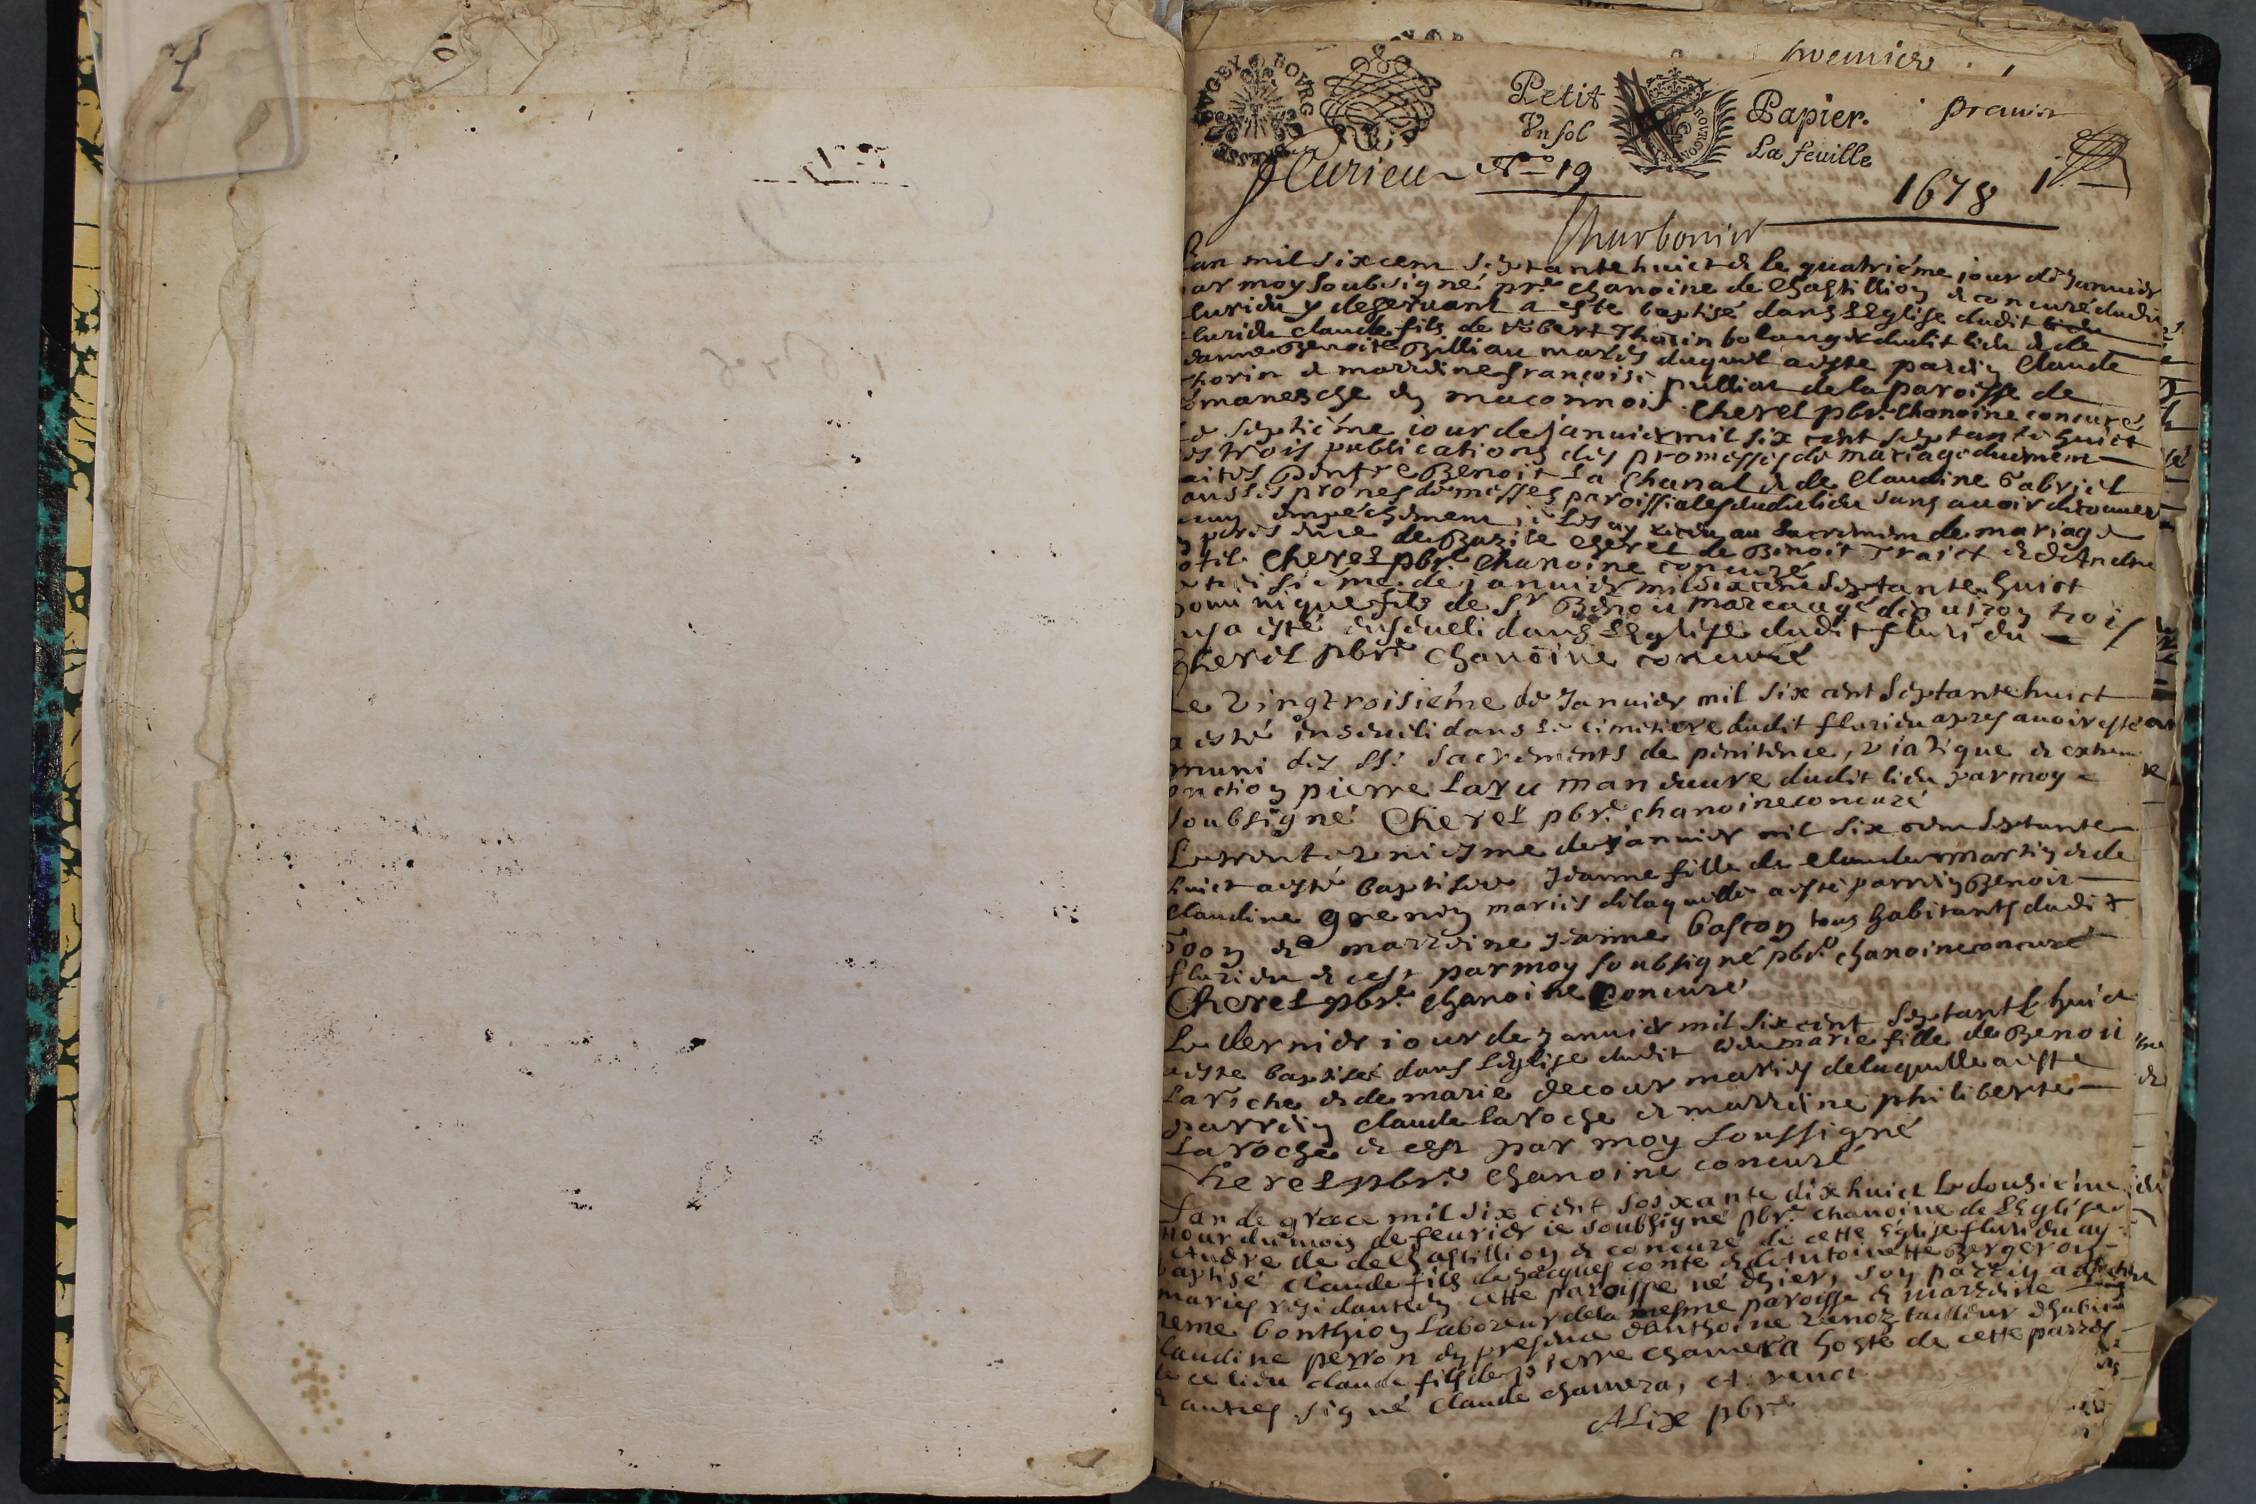 1
premier
BVGEY BOVRG BRESSE
Petit Papier. premier
Vn sol La feuille
fleurieu N° 19
1678 1
Charbonier
Lan mil six cent septante huict & le quatriéme jour de Januier
par moy soubsigné pbre chanoine de Chastillion & concuré dudit
flurieu y deseruant a este baptisé dans L'Eglise dudit
flurieu claude fils de robert Thorin bolangé dudit lieu & de
Benoite Billiau mariés duquel a este parrin Claude
thorin & marrdine françoise pulliat de la paroisse de
romanesche en maconnois Cheret pbre Chanoine concuré
Le septiéme iour de januier mil six cent septante huict
les trois publications des promesses de mariage duement
faites entre Benoit La Chanal & de Claudine Gabriel
aux prones de messes paroissiales dudit lieu sans auoir decouuert
aucun empeschement ie les ay receu au sacrement de mariage
en presence de Bazile Cheret de Benoit Traict & d'Andre
Cheret pbre Chanoine concuré
de januier mil six cent septante huict
dominique fils de Sr Benoit marcau agé denuiron trois
ans a esté enseueli dans L'Eglise dudit flurieu
Cheret pbre Chanoine concuré
Le vingtroisiéme de Januier mil six cent septante huict
a esté enseueli dans le cimitiere dudit flurieu apres auoir esté
muni des SS. sacrements de penitence, viatique & extreme
onction pierre Laru manduure dudit lieu par moy
soubsigné Cheret pbre chanoine concuré
Le trente vniesme de januier mil six cent septante
huict a esté baptisée Jeanne fille de Claude martin & de
Claudine grenon mariés de laquelle a esté parrin Benoit
& marrdine Jeanne bascon tous habitants dudit
flurieu & cest par moy soubsigné pbre chanoine concuré
Cheret pbre Chanoine Concuré
Le dernier iour de januier mil six cent septante huict
a este baptisée dans leglise dudit lieu marie fille de Benoit
Laroche & de marie decour mariés de laquelle a esté
parrdin claude laroche & marrdine philiberte
Laroche & cest par moy soussigné
Cheret pbre Chanoine concuré
Lan de grace mil six cent soixante dixhuict Le dousiéme
iour du mois de feurier ie soubsigné pbre chanoine de L'Eglise
St André de de Chastillion & concuré de cette Eglise flurieu ay
baptisé Claude fils de Jacques conte & d'Antoinette Bergeron
mariés residants en cette paroisse né d'hier, son parrin a esté
bonthion Laboreur de la mesme paroisse & marrdine
claudine perron en presence d'Anthoine renoz tailleur
de ce lieu claude fils de pierre chamera hoste de cette
& autres signé claude chamera, et renot
ALix pbre